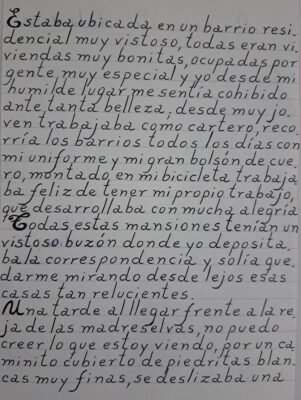 Estaba ubicada en un barrio resi-
dencial muy vistoso, todas eran vi-
viendas muy bonitas, ocupadas por
gente muy especial y yo desde mi
humilde lugar me sentía cohibido
ante tanta belleza, desde muy jo-
ven trabajaba como cartero, reco-
rría los barrios todos los días con
mi uniforme y mi gran bolsón de cue-
ro, montado en mi bicicleta trabaja
ba feliz de tener mi propio trabajo,
que desarrollaba con mucha alegría
Todas estas mansiones tenían un
vistoso buzón donde yo deposita-
ba la correspondencia y solía que-
darme mirando desde lejos esas
casas tan relucientes.
Una tarde al llegar frente a la re-
ja de las madreselvas, no puedo
creer lo que estoy viendo, por un ca-
minito cubierto de piedritas blan-
cas muy finas, se deslizaba una